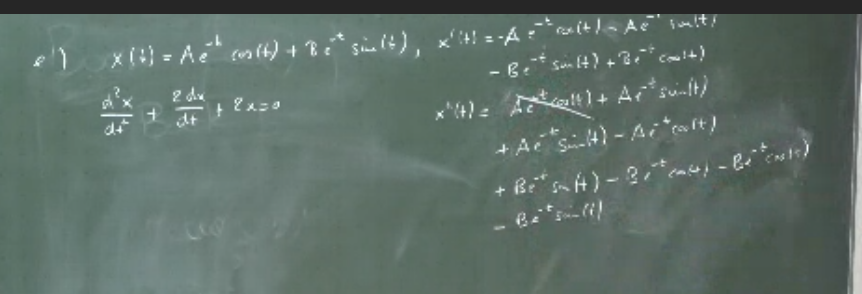 e') x(t) = Ae^-t cos(t) + Be^-t sin(t), x'(t) = -Ae^-t cos(t) - Ae^-t sin(t)
- Be^-t sin(t) + Be^-t cos(t)
d²x/dt² + 2dx/dt + 2x=0
x''(t) = Ae^-t cos(t) + Ae^-t sin(t)
+ Ae^-t sin(t) - Ae^-t cos(t)
+ Be^-t sin(t) - Be^-t cos(t) - Be^-t cos(t)
- Be^-t sin(t)